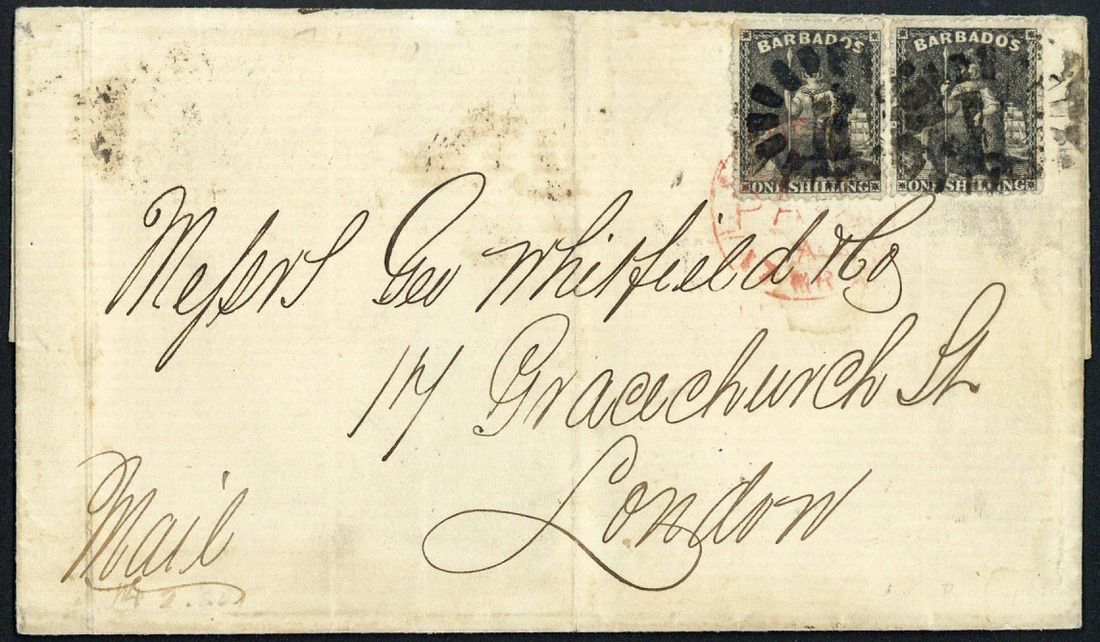 BARBADOS BARBADOS
ONE SHILLING ONE SHILLING
PAID
A
MR
Messrs Geo Whitfield & Co
17 Gracechurch St
London
Mail